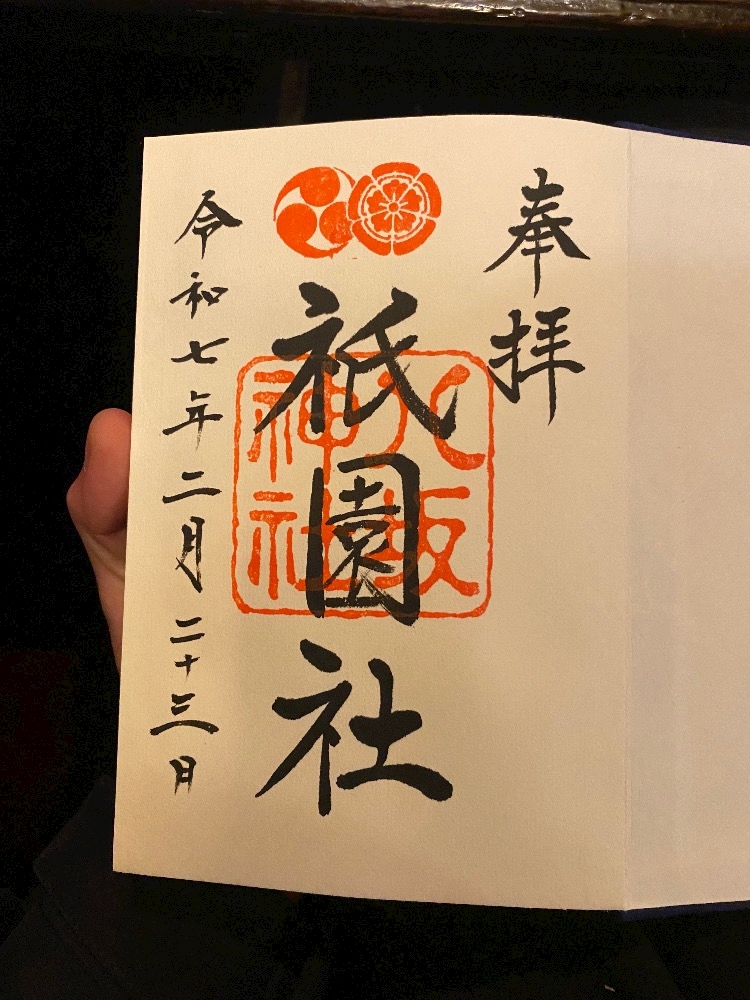 奉拝
祇園社
八坂
神社
令和七年二月二十三日